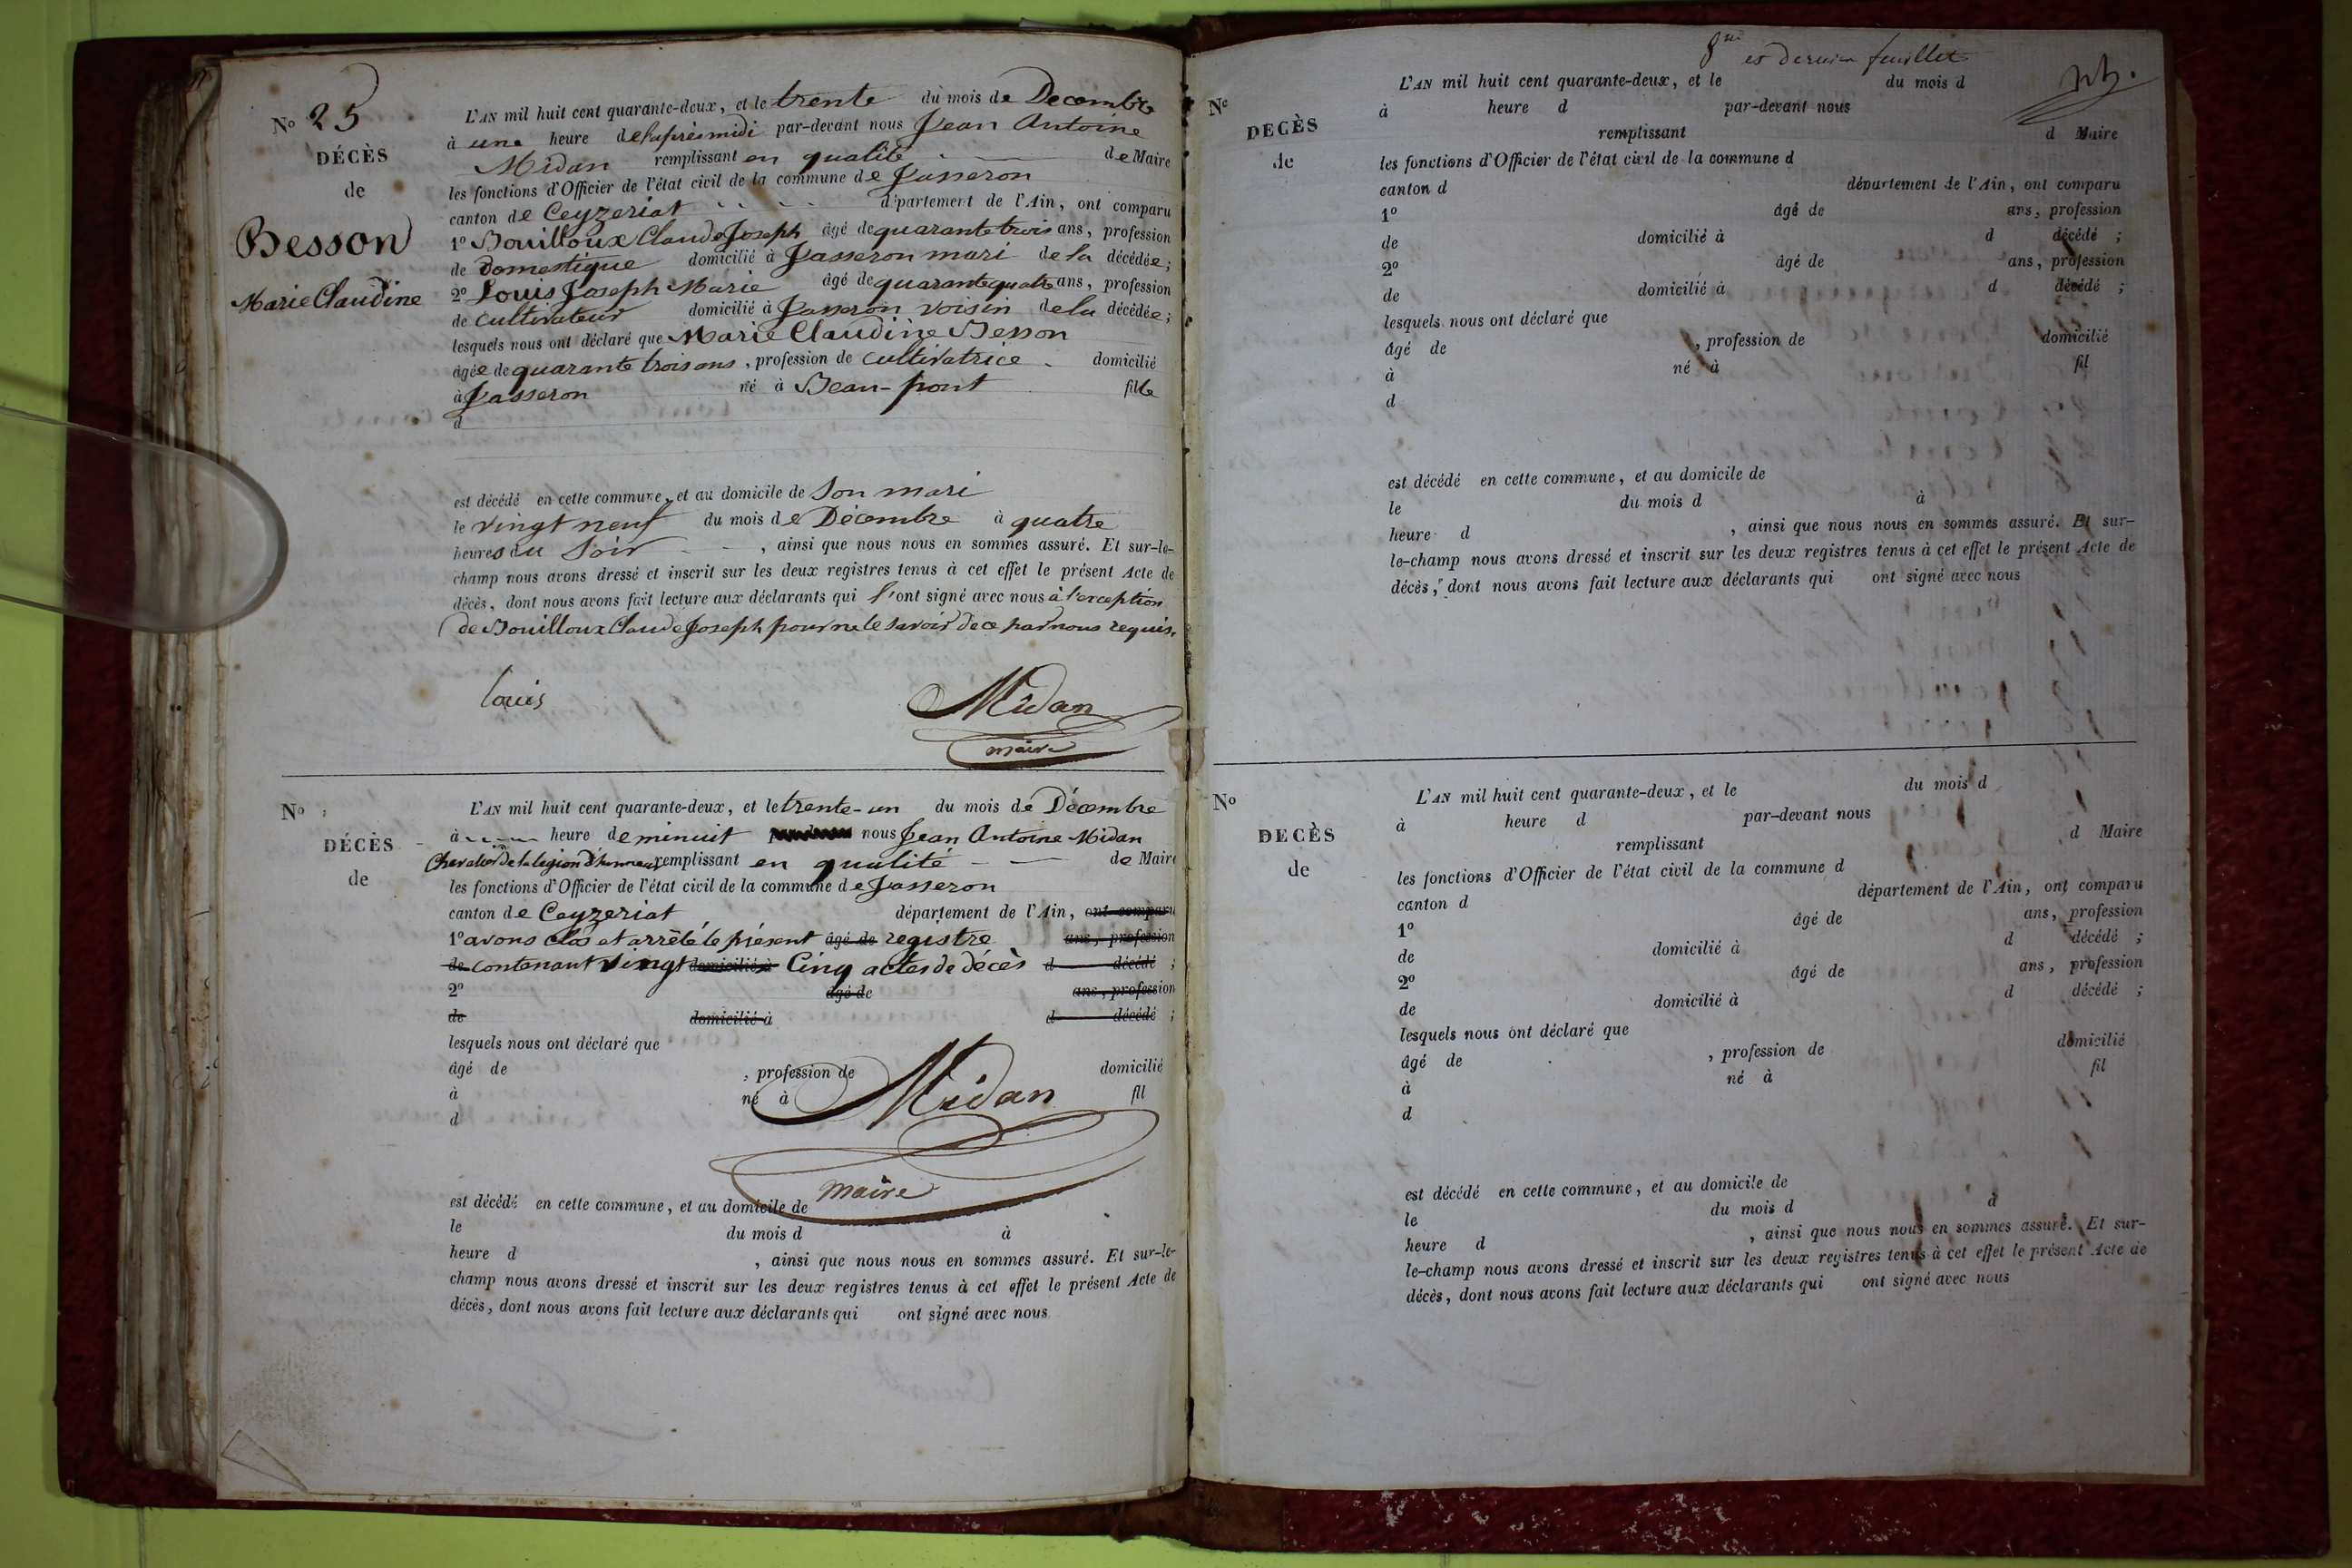 N° 25
DÉCÈS
de
Besson
Marie Claudine
L'AN mil huit cent quarante-deux, et le trente du mois de Decembre
à une heure de l'après midi par-devant nous Jean Antoine
Midan remplissant en qualité de Maire
les fonctions d'Officier de l'état civil de la commune de Jasseron
canton de Ceyzeriat département de l'Ain, ont comparu
1° Bouilloux Claude Joseph âgé de quarante trois ans, profession
de domestique domicilié à Jasseron mari de la décédée;
2° Louis Joseph Marie âgé de quarante quatre ans, profession
de cultivateur domicilié à Jasseron voisin de la décédée;
lesquels nous ont déclaré que Marie Claudine Besson
âgée de quarante trois ans, profession de cultivatrice domicilié
à Jasseron né à Beau-pont fille
d
est décédé en cette commune, et au domicile de son mari
le vingt neuf du mois de Décembre à quatre
heures du Soir, ainsi que nous nous en sommes assuré. Et sur-le-
champ nous avons dressé et inscrit sur les deux registres tenus à cet effet le présent Acte de
décès, dont nous avons fait lecture aux déclarants qui l'ont signé avec nous à l'exception
de Bouilloux Claude Joseph pour ne le savoir de ce par nous requis.
Louis
Midan
maire
N°
DÉCÈS
de
L'AN mil huit cent quarante-deux, et le trente-un du mois de Décembre
à heure de minuit nous Jean Antoine Midan
Chevalier de la legion d'honneur remplissant en qualité de Maire
les fonctions d'Officier de l'état civil de la commune de Jasseron
canton de Ceyzeriat département de l'Ain, ont comparu
1° avons clos et arrêté le présent âgé de registre ans, profession
de contenant vingt domicilié à Cinq actes de décès d décédé ;
2° âgé de ans, profession
de domicilié à d décédé ;
lesquels nous ont déclaré que
âgé de , profession de domicilié
à né à fil
d
Midan
maire
est décédé en cette commune, et au domicile de
le du mois d à
heure d , ainsi que nous nous en sommes assuré. Et sur-le-
champ nous avons dressé et inscrit sur les deux registres tenus à cet effet le présent Acte de
décès, dont nous avons fait lecture aux déclarants qui ont signé avec nous
8me et dernier feuillet
N°
DECÈS
de
L'AN mil huit cent quarante-deux, et le du mois d
à heure d par-devant nous
remplissant d Maire
les fonctions d'Officier de l'état civil de la commune d
canton d département de l'Ain, ont comparu
1° âgé de ans, profession
de domicilié à d décédé ;
2° âgé de ans, profession
de domicilié à d décédé ;
lesquels nous ont déclaré que
âgé de , profession de domicilié
à né à fil
d
est décédé en cette commune, et au domicile de
le du mois d à
heure d , ainsi que nous nous en sommes assuré. Et sur-
le-champ nous avons dressé et inscrit sur les deux registres tenus à cet effet le présent Acte de
décès, dont nous avons fait lecture aux déclarants qui ont signé avec nous
N°
DECÈS
de
L'AN mil huit cent quarante-deux, et le du mois d
à heure d par-devant nous
remplissant d Maire
les fonctions d'Officier de l'état civil de la commune d
canton d département de l'Ain, ont comparu
1° âgé de ans, profession
de domicilié à d décédé ;
2° âgé de ans, profession
de domicilié à d décédé ;
lesquels nous ont déclaré que
âgé de , profession de domicilié
à né à fil
d
est décédé en cette commune, et au domicile de
le du mois d à
heure d , ainsi que nous nous en sommes assuré. Et sur-
le-champ nous avons dressé et inscrit sur les deux registres tenus à cet effet le présent Acte de
décès, dont nous avons fait lecture aux déclarants qui ont signé avec nous